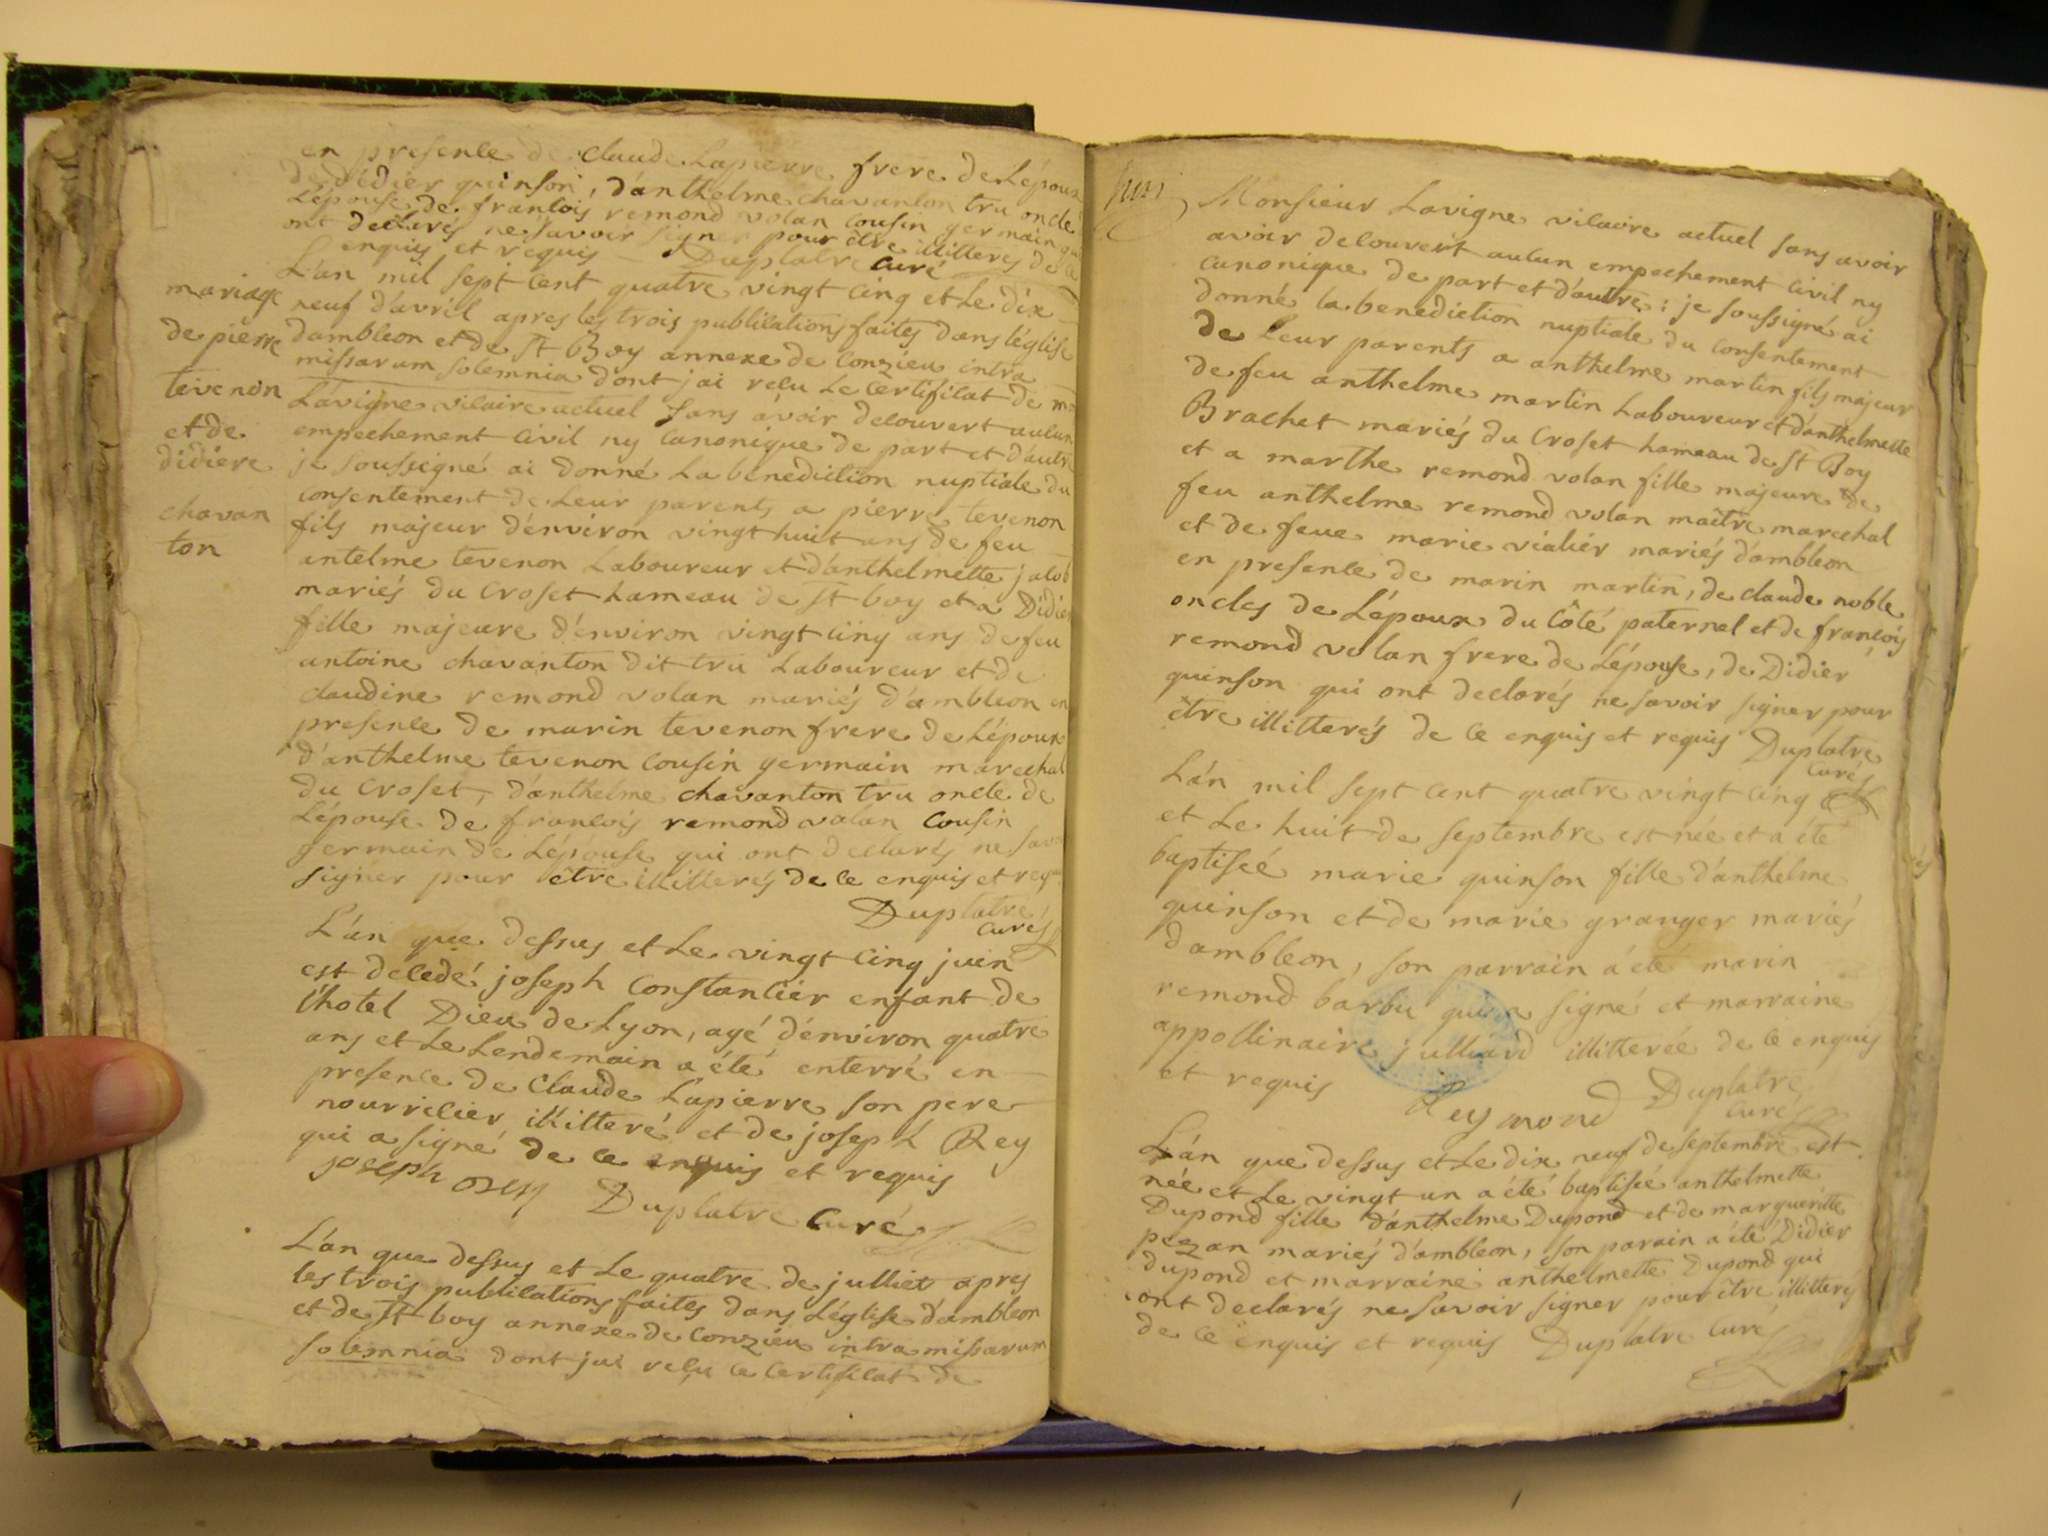 en presence de claude Lapierre frere de Lépoux
de didier quinson, d'anthelme chavanton tru oncle
Lépouse de francois remond volan cousin germain qui
ont declarés ne savoir signer pour être illiterés de ce
enquis et requis Duplatre curé
L'an mil sept cent quatre vingt cinq et Le dix
mariage neuf d'avril apres les trois publications faites dans léglise
de pierre dambleon et de st Boy annexe de Conzieu intra
missarum solemnia dont jai reçu Le certificat de mr
tevenon Lavigne vicaire actuel sans avoir decouvert aucun
et de empechement civil ny canonique de part et d'autre
didiere je soussigné ai donné La benediction nuptiale du
consentement de Leur parents a pierre tevenon
chavan fils majeur d'environ vingt huit ans de feu
ton antelme tevenon Laboureur et d'anthelmette jacob
mariés du Croset hameau de st boy et a Didier
fille majeure d'environ vingt cinq ans de feu
antoine chavanton dit tru Laboureur et de
claudine remond volan mariés d'ambleon en
presence de marin tevenon frere de Lépoux
d'anthelme tevenon cousin germain marechal
du Croset, d'anthelme chavanton tru oncle de
Lépouse de francois remond volan Cousin
germain de Lépouse qui ont declarés ne savoir
signer pour être illiterés de ce enquis et requis
Duplatre
curé
L'an que dessus et Le vingt cinq juin
est décedé joseph Constancier enfant de
l'hotel Dieu de Lyon, agé d'environ quatre
ans et Le Lendemain a été enterré en
presence de Claude Lapierre son pere
nourricier illiteré et de joseph Rey
qui a signé de ce enquis et requis
joseph Duplatre Curé
L'an que dessus et Le quatre de julliet apres
les trois publications faites dans Léglise d'ambleon
et de st boy annexe de Conzieu intra missarum
solemnia dont jai reçu Le certificat de
Monsieur Lavigne vicaire actuel sans avoir
avoir decouvert aucun empechement civil ny
canonique de part et d'autre : je soussigné ai
donné la benediction nuptiale du consentement
de Leur parents a anthelme martin fils majeur
de feu anthelme martin Laboureur et d'anthelmette
Brachet mariés du Croset hameau de St Boy
et a marthe remond volan fille majeure de
feu anthelme remond volan maître marechal
et de feue marie vialiér mariés d'ambleon
en presence de marin martin, de claude noble
oncles de Lépoux du Côté paternel et de francois
remond volan frere de Lépouse, de Didier
quinson qui ont declarés ne savoir signer pour
être illitterés de ce enquis et requis Duplatre
curé
L'an mil sept cent quatre vingt cinq
et Le huit de septembre est née et a été
baptiseé marie quinson fille d'anthelme
quinson et de marie granger mariés
dambleon, son parrain a été marin
remond barbu qui a signé et marraine
appollinaire julliard illitereé de ce enquis
et requis Reymond Duplatre
curé
L'an que dessus et Le dix neuf de septembre est
née et Le vingt un a été baptiseé anthelmette
Dupond fille d'anthelme Dupond et de margueritte
pezan mariés d'ambleon, son parain a été Didier
dupond et marraine anthelmette Dupond qui
ont declarés ne savoir signer pour être illitterés
de ce enquis et requis Duplatre curé